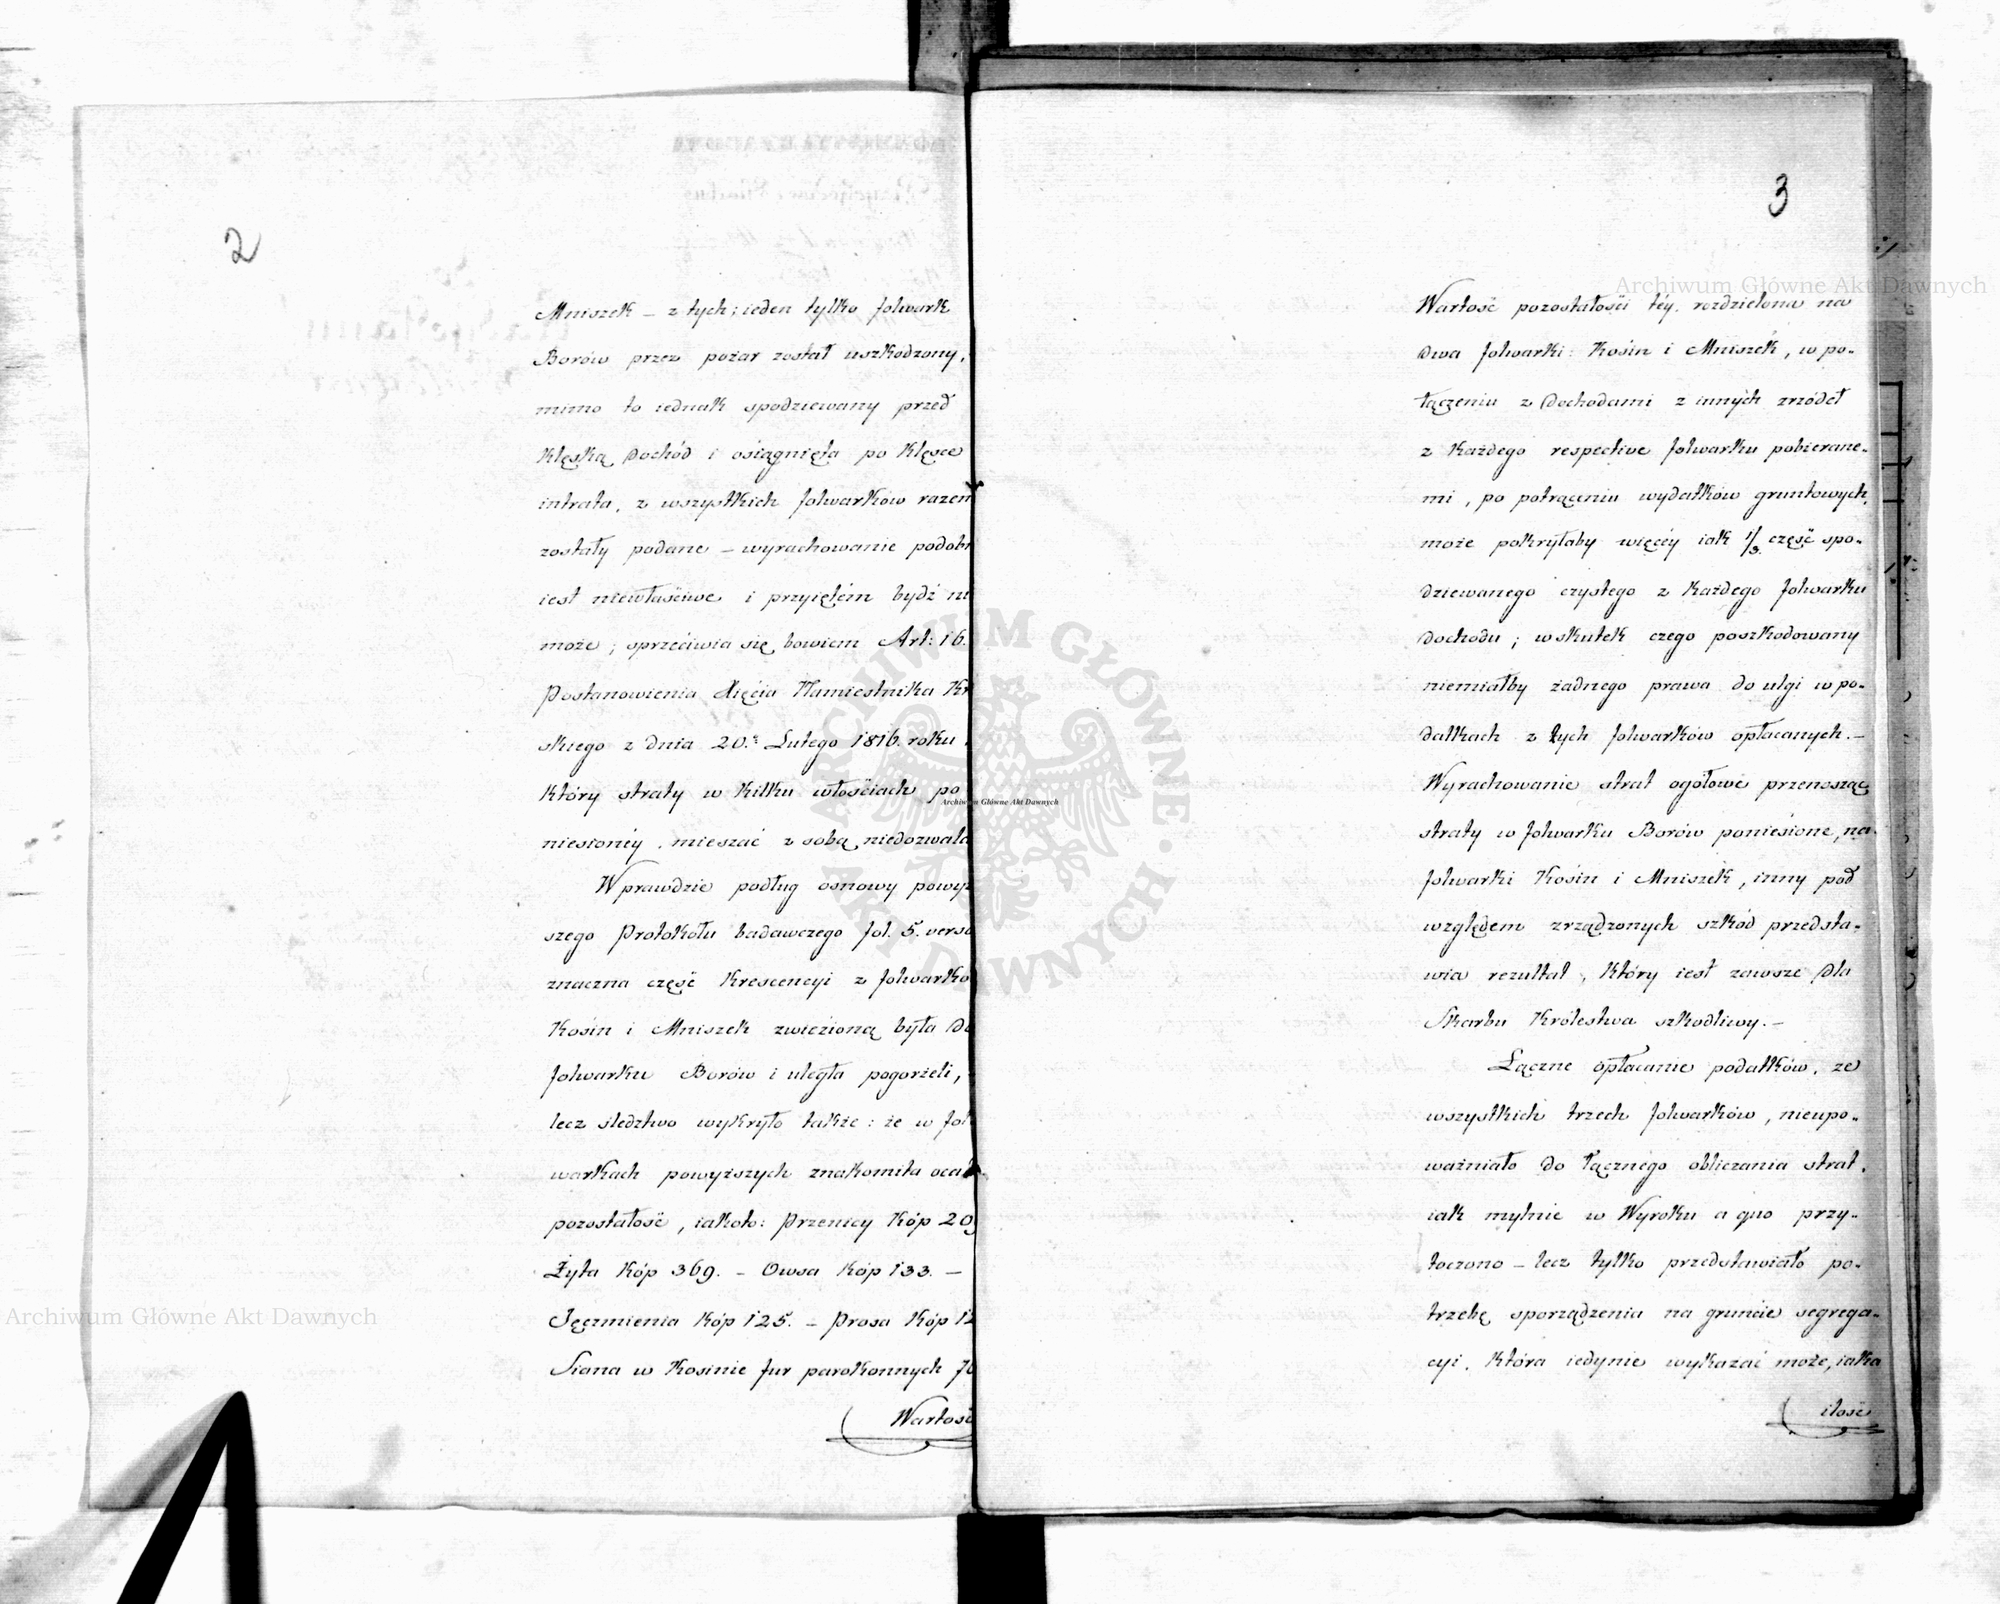 2
Mniszek – z tych; ieden tylko folwark
Borów przez pożar został uszkodzony,
mimo to iednak spodziewany przed
klęską dochód i osiągnięta po klęsce
intrata, z wszystkich folwarków razem
zostały podane – wyrachowanie podobn
iest niewłaściwe i przyiętém bydź ni
może; sprzeciwia się bowiem Art: 16.
Postanowienia Xięcia Namiestnika Kr
skiego z dnia 20. Lutego 1816. roku
który straty w kilku włościach po
niesionéy, mieszać z sobą niedozwala
Wprawdzie podług osnowy powyż
szego Protokółu badawczego fol. 5. verso
znaczna część Krescencyi z folwarko
Kosin i Mniszek zwiezioną była do
folwarku Borów i uległa pogorzeli,
lecz śledztwo wykryło także: że w fol
warkach powyższych znakomita ocal
pozostałość, iakoto: Przenicy Kóp 20
Żyta Kóp 369. – Owsa Kóp 133. –
Jęczmienia Kóp 125. – Prosa Kóp 12
Siana w Kosinie fur parokonnych 70
Wartość
3
Wartość pozostałości téy, rozdzielona na
dwa folwarki: Kosin i Mniszek, w po-
łączeniu z Dochodami z innych zrzódeł
z każdego respective folwarku pobierane-
mi, po potrąceniu wydatków gruntowych,
może pokryłaby więcéy iak 1/3. część spo-
dziewanego czystego z każdego folwarku
dochodu; wskutek czego poszkodowany
niemiałby żadnego prawa do ulgi w po-
datkach z tych folwarków opłacanych.–
Wyrachowanie strat ogółowe przenosząc
straty w folwarku Borów poniesione, na
folwarki Kosin i Mniszek, inny pod
względem zrządzonych szkód przedsta-
wia rezultat, który iest zawsze dla
Skarbu Królestwa szkodliwy.–
Łączne opłacanie podatków, ze
wszystkich trzech folwarków, nieupo-
ważniało do łącznego obliczania strat,
iak mylnie w Wyroku a quo przy-
toczono – lecz tylko przedstawiało po-
trzebę sporządzenia na gruncie segrega-
cyi, która iedynie wykazać może, iaka
ilość
Archiwum Główne Akt Dawnych
Archiwum Główne Akt Dawnych
Archiwum Główne Akt Dawnych
ARCHIWUM GŁÓWNE AKT DAWNYCH